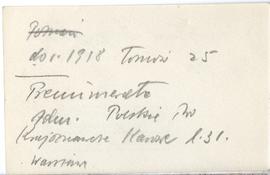 dor. 1918 Tomów 25
Prenumerata
Polskie Tow
Krajoznawcze Karowa l. 31.
Warszawa